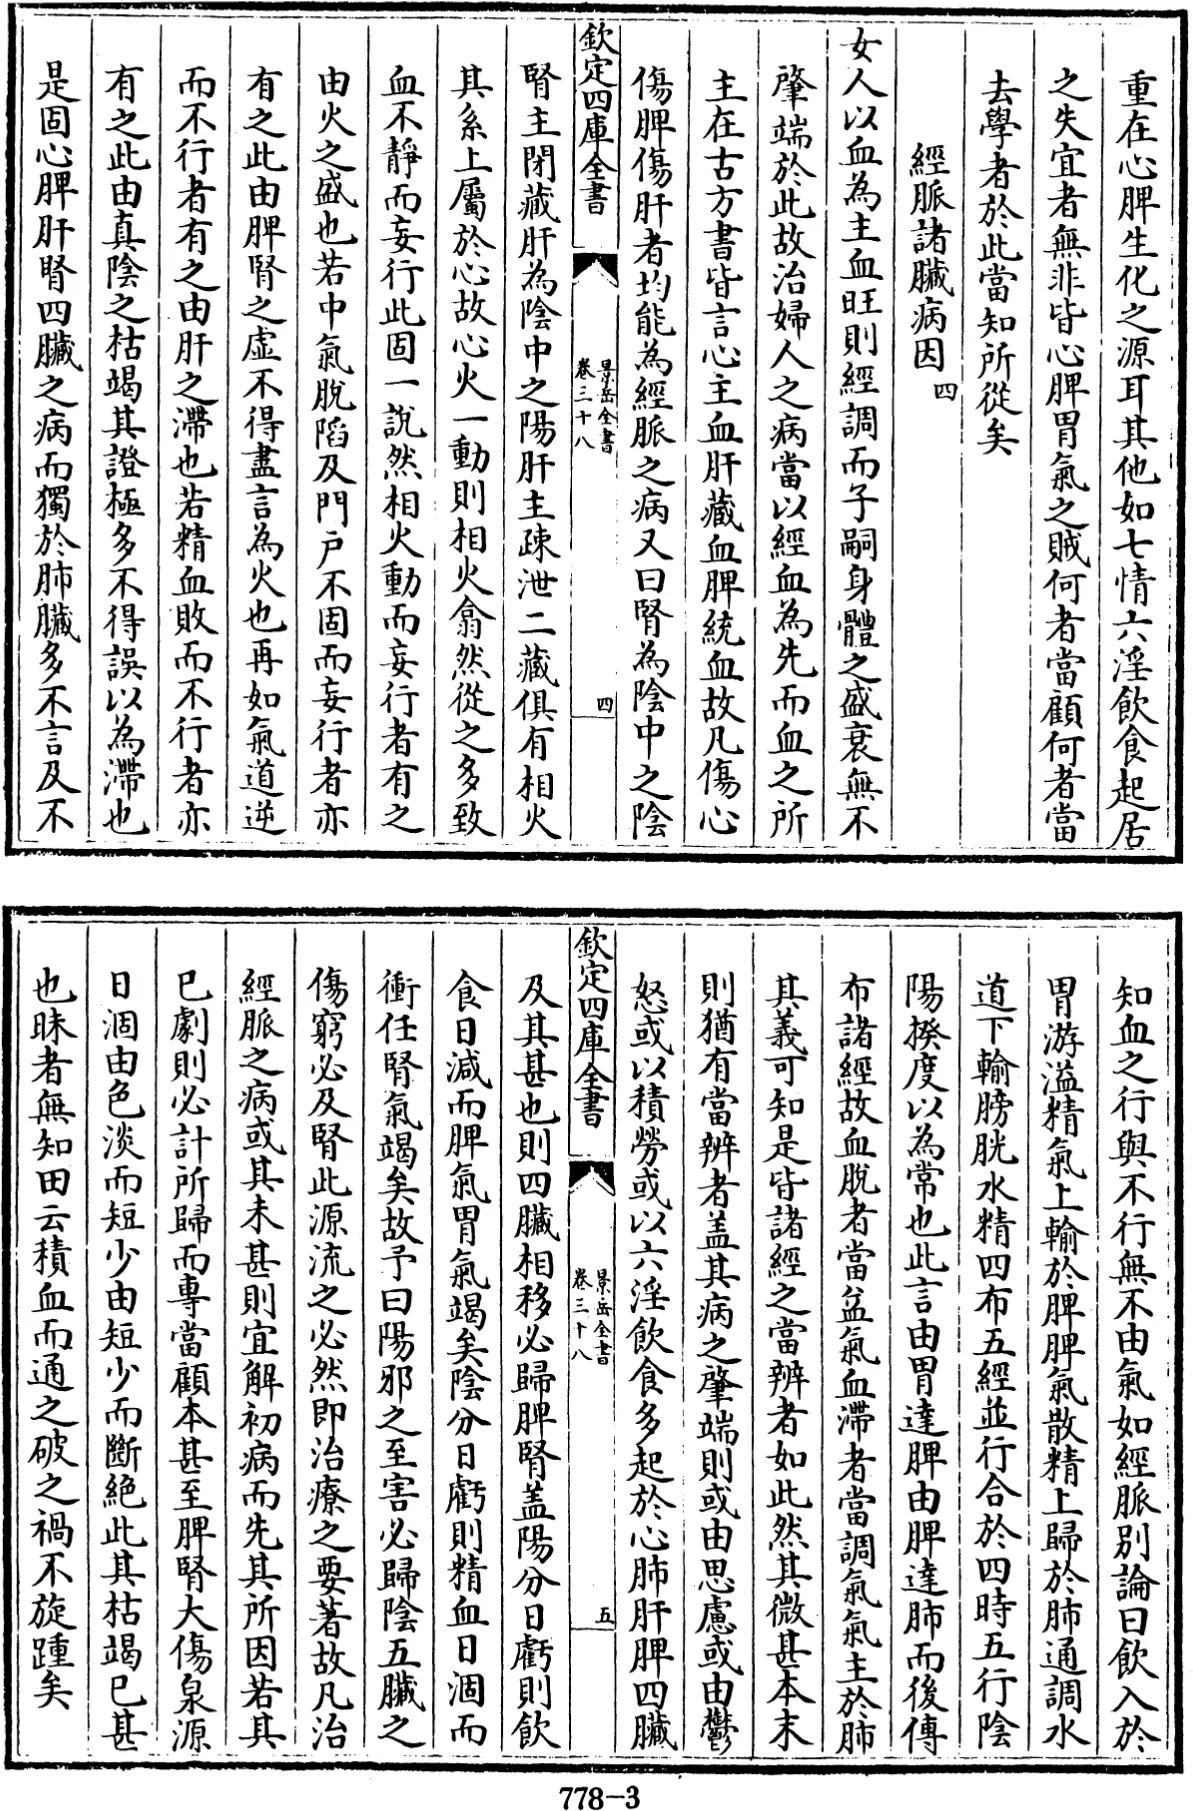 重在心脾生化之源耳其他如七情六淫飲食起居
之失宜者無非皆心脾胃氣之賊何者當顧何者當
去學者於此當知所從矣
經脈諸臟病因 四
女人以血為主血旺則經調而子嗣身體之盛衰無不
肇端於此故治婦人之病當以經血為先而血之所
主在古方書皆言心主血肝藏血脾統血故凡傷心
傷脾傷肝者均能為經脈之病又曰腎為陰中之陰
欽定四庫全書 景岳全書 卷三十八 四
腎主閉藏肝為陰中之陽肝主疎泄二藏俱有相火
其系上屬於心故心火一動則相火翕然從之多致
血不靜而妄行此固一説然相火動而妄行者有之
由火之盛也若中氣脫陷及門户不固而妄行者亦
有之此由脾腎之虛不得盡言為火也再如氣道逆
而不行者有之由肝之滯也若精血敗而不行者亦
有之此由真陰之枯竭其證極多不得誤以為滯也
是固心脾肝腎四臟之病而獨於肺臟多不言及不
知血之行與不行無不由氣如經脈别論曰飲入於
胃游溢精氣上輸於脾脾氣散精上歸於肺通調水
道下輸膀胱水精四布五經並行合於四時五行陰
陽揆度以為常也此言由胃達脾由脾達肺而後傳
布諸經故血脫者當益氣血滯者當調氣氣主於肺
其義可知是皆諸經之當辨者如此然其微甚本末
則猶有當辨者葢其病之肇端則或由思慮或由鬱
怒或以積勞或以六淫飲食多起於心肺肝脾四臟
欽定四庫全書 景岳全書 卷三十八 五
及其甚也則四臟相移必歸脾腎葢陽分日虧則飲
食日減而脾氣胃氣竭矣陰分日虧則精血日涸而
衝任腎氣竭矣故予曰陽邪之至害必歸陰五臟之
傷窮必及腎此源流之必然即治療之要著故凡治
經脈之病或其未甚則宜解初病而先其所因若其
已劇則必計所歸而專當顧本甚至脾腎大傷泉源
日涸由色淡而短少由短少而斷絶此其枯竭已甚
也昧者無知田云積血而通之破之禍不旋踵矣
778-3